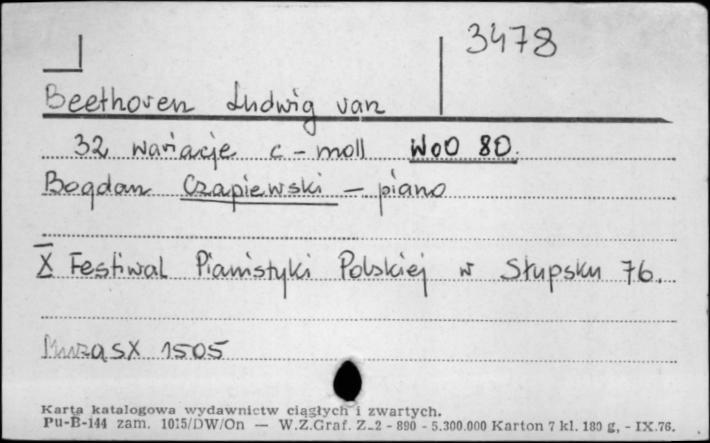 3478
Beethoven Ludwig van
32 wariacje c-moll WoO 80.
Bogdan Czapiewski - piano
X Festiwal Pianistyki Polskiej w Słupsku 76.
SX 1505
Karta katalogowa wydawnictw ciągłych i zwartych.
Pu-B-144 zam. 1015/DW/On — W.Z.Graf. Z-2 - 890 - 5.300.000 Karton 7 kl. 180 g, - IX.76.